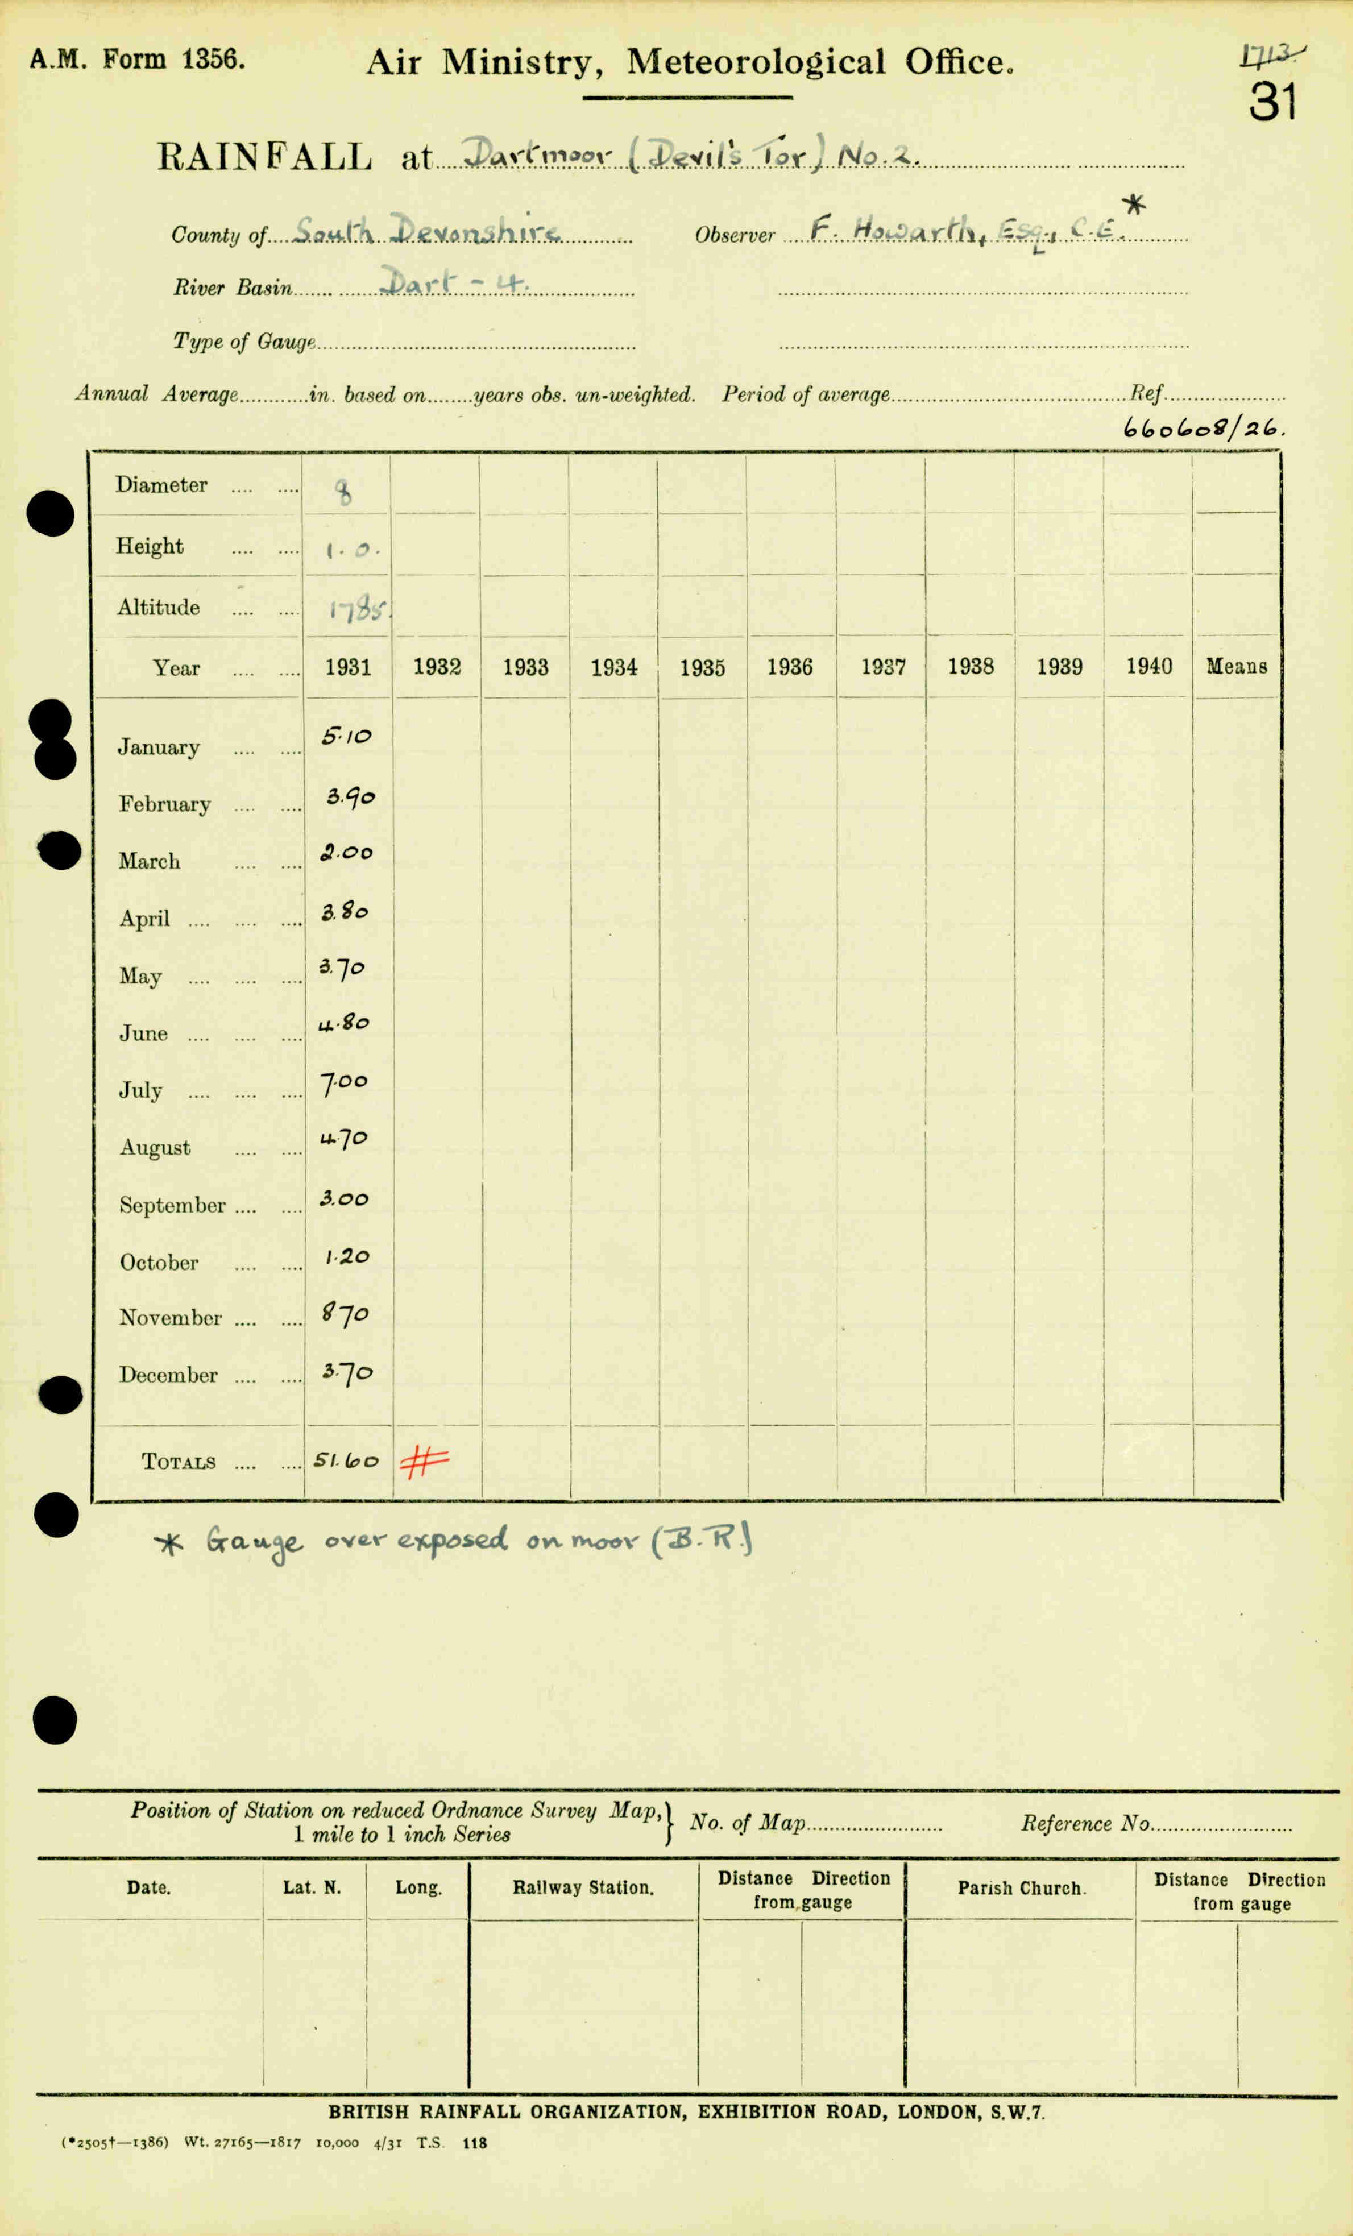 A.M. Form 1356. Air Ministry, Meteorological Office. 1713
31
RAINFALL at Dartmoor (Devil's Tor) No. 2.
County of South Devonshire Observer F. Howarth, Esq., C.E.*
River Basin Dart - 4.
Type of Gauge
Annual Average in. based on years obs. un-weighted. Period of average Ref.
660608/26.
Diameter 8
Height 1.0.
Altitude 1785.
Year 1931 1932 1933 1934 1935 1936 1937 1938 1939 1940 Means
January 5.10
February 3.90
March 2.00
April 3.80
May 3.70
June 4.80
July 7.00
August 4.70
September 3.00
October 1.20
November 8 70
December 3.70
TOTALS 51.60 #
* Gauge over exposed on moor (B.R.)
Position of Station on reduced Ordnance Survey Map, } No. of Map Reference No.
1 mile to 1 inch Series
Date. Lat. N. Long. Railway Station. Distance Direction from gauge Parish Church. Distance Direction from gauge
BRITISH RAINFALL ORGANIZATION, EXHIBITION ROAD, LONDON, S.W.7.
(*2505†—1386) Wt. 27165—1817 10,000 4/31 T.S. 118